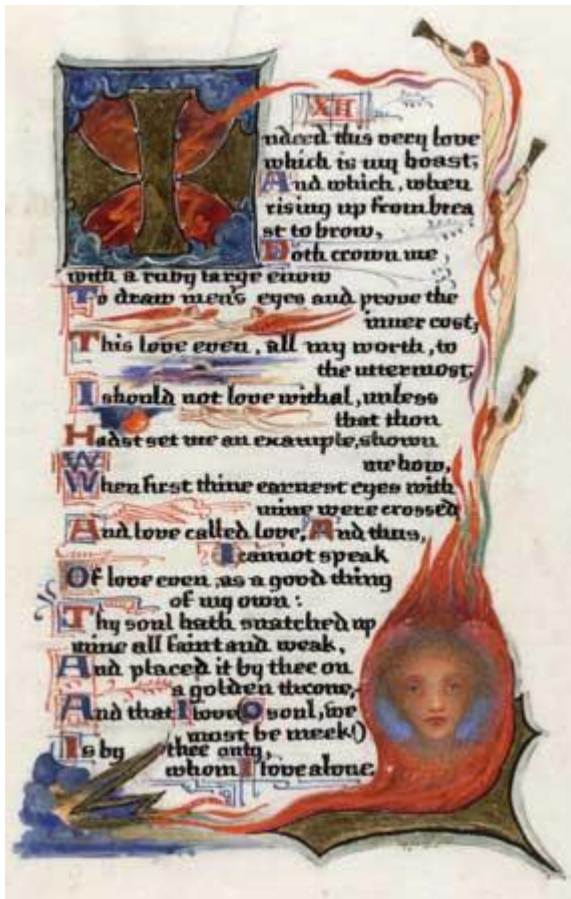 XII
Indeed this very love
which is my boast,
And which, when
rising up from brea
st to brow,
Doth crown me,
with a ruby large enow
To draw men's eyes and prove the
inner cost,
This love even, all my worth, to
the uttermost,
I should not love withal, unless
that thou
Hadst set me an example, shown
me how,
When first thine earnest eyes with
mine were crossed
And love called love, And thus,
I cannot speak
Of love even, as a good thing
of my own:
Thy soul hath snatched up
mine all faint and weak,
And placed it by thee on
a golden throne,
And that I love O soul, we
must be meek!)
Is by thee only,
whom I love alone.